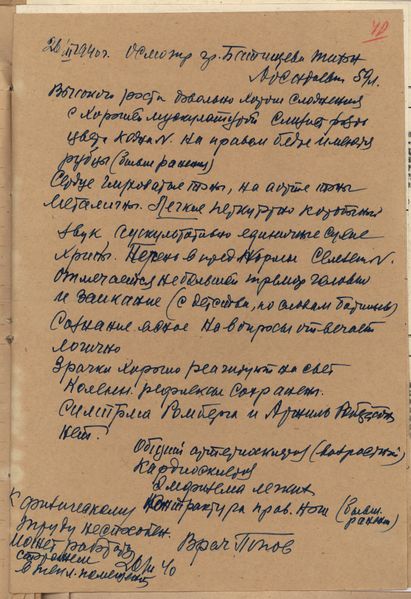 40
20/III 1940г. Осмотр гр. Батищева
59 л.
Высокого роста довольно хорошего сложения
с хорошей мускулатурой слизистые
цвета кожа N. На правом бедре имеются
рубцы (бывш ранения)
Сердце глуховатые тоны, на аорте тоны
металичны. Легкие перкуторно коробочный
звук аускультативно единичные сухие
хрипы. Печень в пред нормы Селезен N.
Отмечается небольшой тремор головы
и заикание (с детства, по словам больного)
Сознание ясное на вопросы отвечает
логично
Зрачки хорошо реагируют на свет
Коленн. рефлексы сохранены.
Симптома Ромберга и
нет.
Общий артериосклероз (возрастной)
Кардиосклероз
Эмфизема легких
Контрактура прав. ноги (бывш.
ранен)
К физическому
труду неспособен.
Может работать
сторожем
в тепл. помещении
Врач Попов
20/III 40